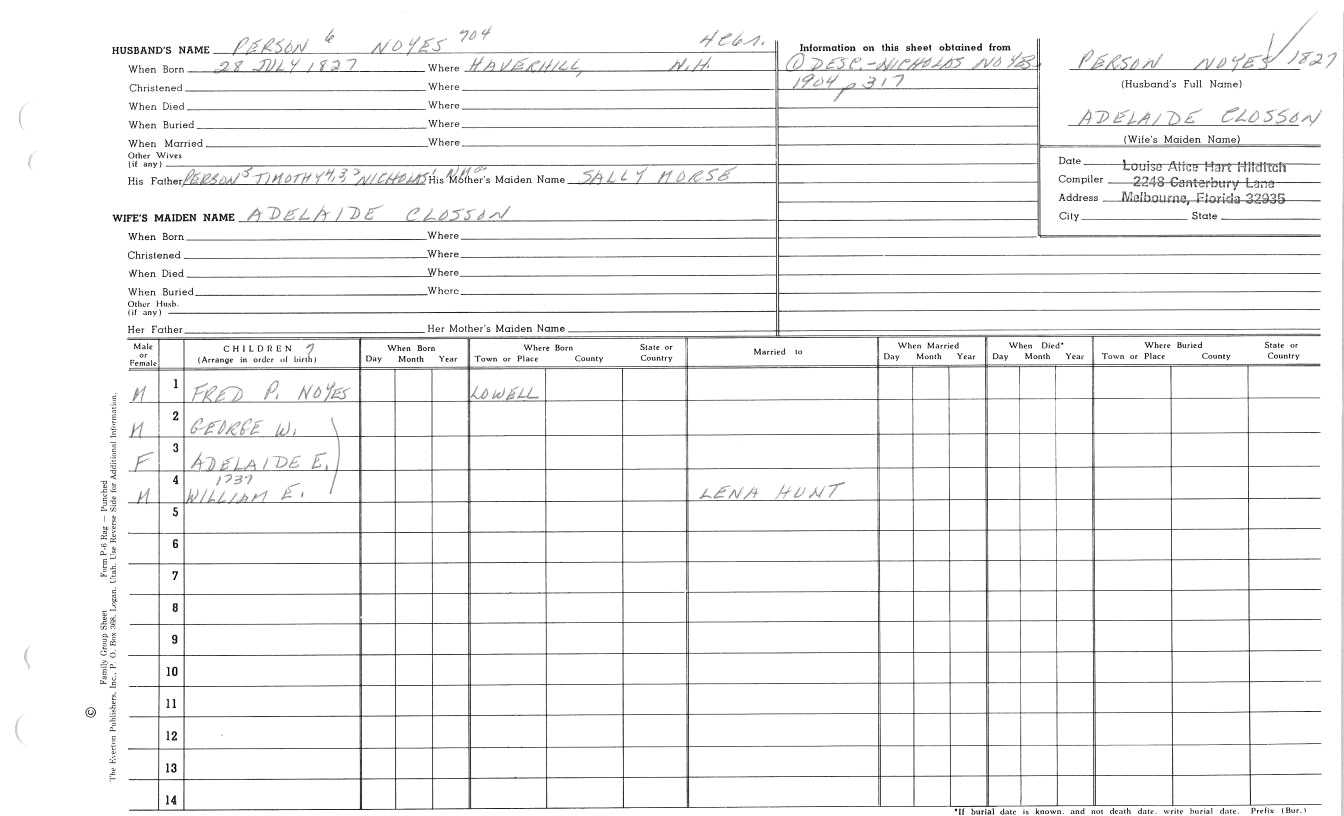 HUSBAND'S NAME PERSON 6 NOYES 704
When Born 28 JULY 1827 Where HAVERHILL, N.H.
Christened Where
When Died Where
When Buried Where
When Married Where
Other Wives
(if any)
His Father PERSON 5 TIMOTHY 4,3,2 NICHOLAS 1 His Mother's Maiden Name SALLY MORSE
WIFE'S MAIDEN NAME ADELAIDE CLOSSON
When Born Where
Christened Where
When Died Where
When Buried Where
Other Husb.
(if any)
Her Father Her Mother's Maiden Name
Information on this sheet obtained from
① DESC.-NICHOLAS NOYES
1904 p 317
PERSON NOYES 1827
(Husband's Full Name)
ADELAIDE CLOSSON
(Wife's Maiden Name)
Date Louise Alice Hart Hilditch
Compiler 2248 Canterbury Lane
Address Melbourne, Florida 32935
City State
Male or Female CHILDREN 7 (Arrange in order of birth) When Born Day Month Year Where Born Town or Place County State or Country Married to When Married Day Month Year When Died* Day Month Year Where Buried Town or Place County State or Country
M 1 FRED P. NOYES LOWELL
M 2 GEORGE W.
F 3 ADELAIDE E.
1737
M 4 WILLIAM E. LENA HUNT
5
6
7
8
9
10
11
12
13
14
*If burial date is known, and not death date, write burial date. Prefix (Bur.)
© Family Group Sheet Form P-6 Rag — Punched
The Everton Publishers, Inc., P. O. Box 368, Logan, Utah. Use Reverse Side for Additional Information.